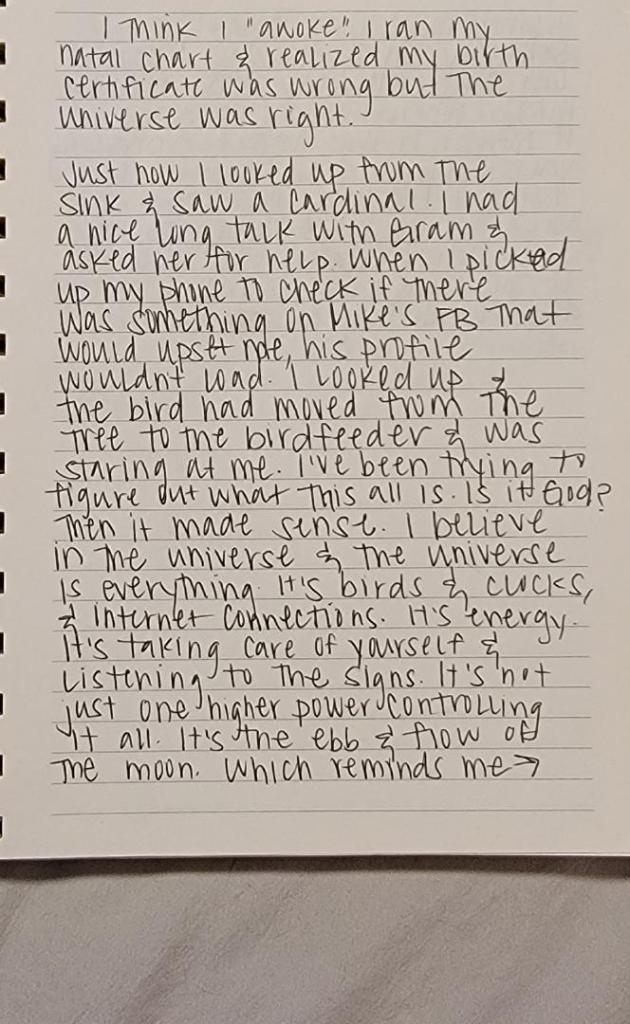 I think I "awoke". I ran my
natal chart & realized my birth
certificate was wrong but the
universe was right.
Just now I looked up from the
sink & saw a cardinal. I had
a nice long talk with Gram &
asked her for help. When I picked
up my phone to check if there
was something on Mike's FB that
would upset me, his profile
wouldnt load. I looked up &
the bird had moved from the
tree to the birdfeeder & was
staring at me. I've been trying to
figure out what this all is. Is it God?
Then it made sense. I believe
in the universe & the universe
is everything. It's birds & clocks,
& internet connections. It's energy.
It's taking care of yourself &
listening to the signs. It's not
just one higher power controlling
it all. It's the ebb & flow of
the moon. Which reminds me →